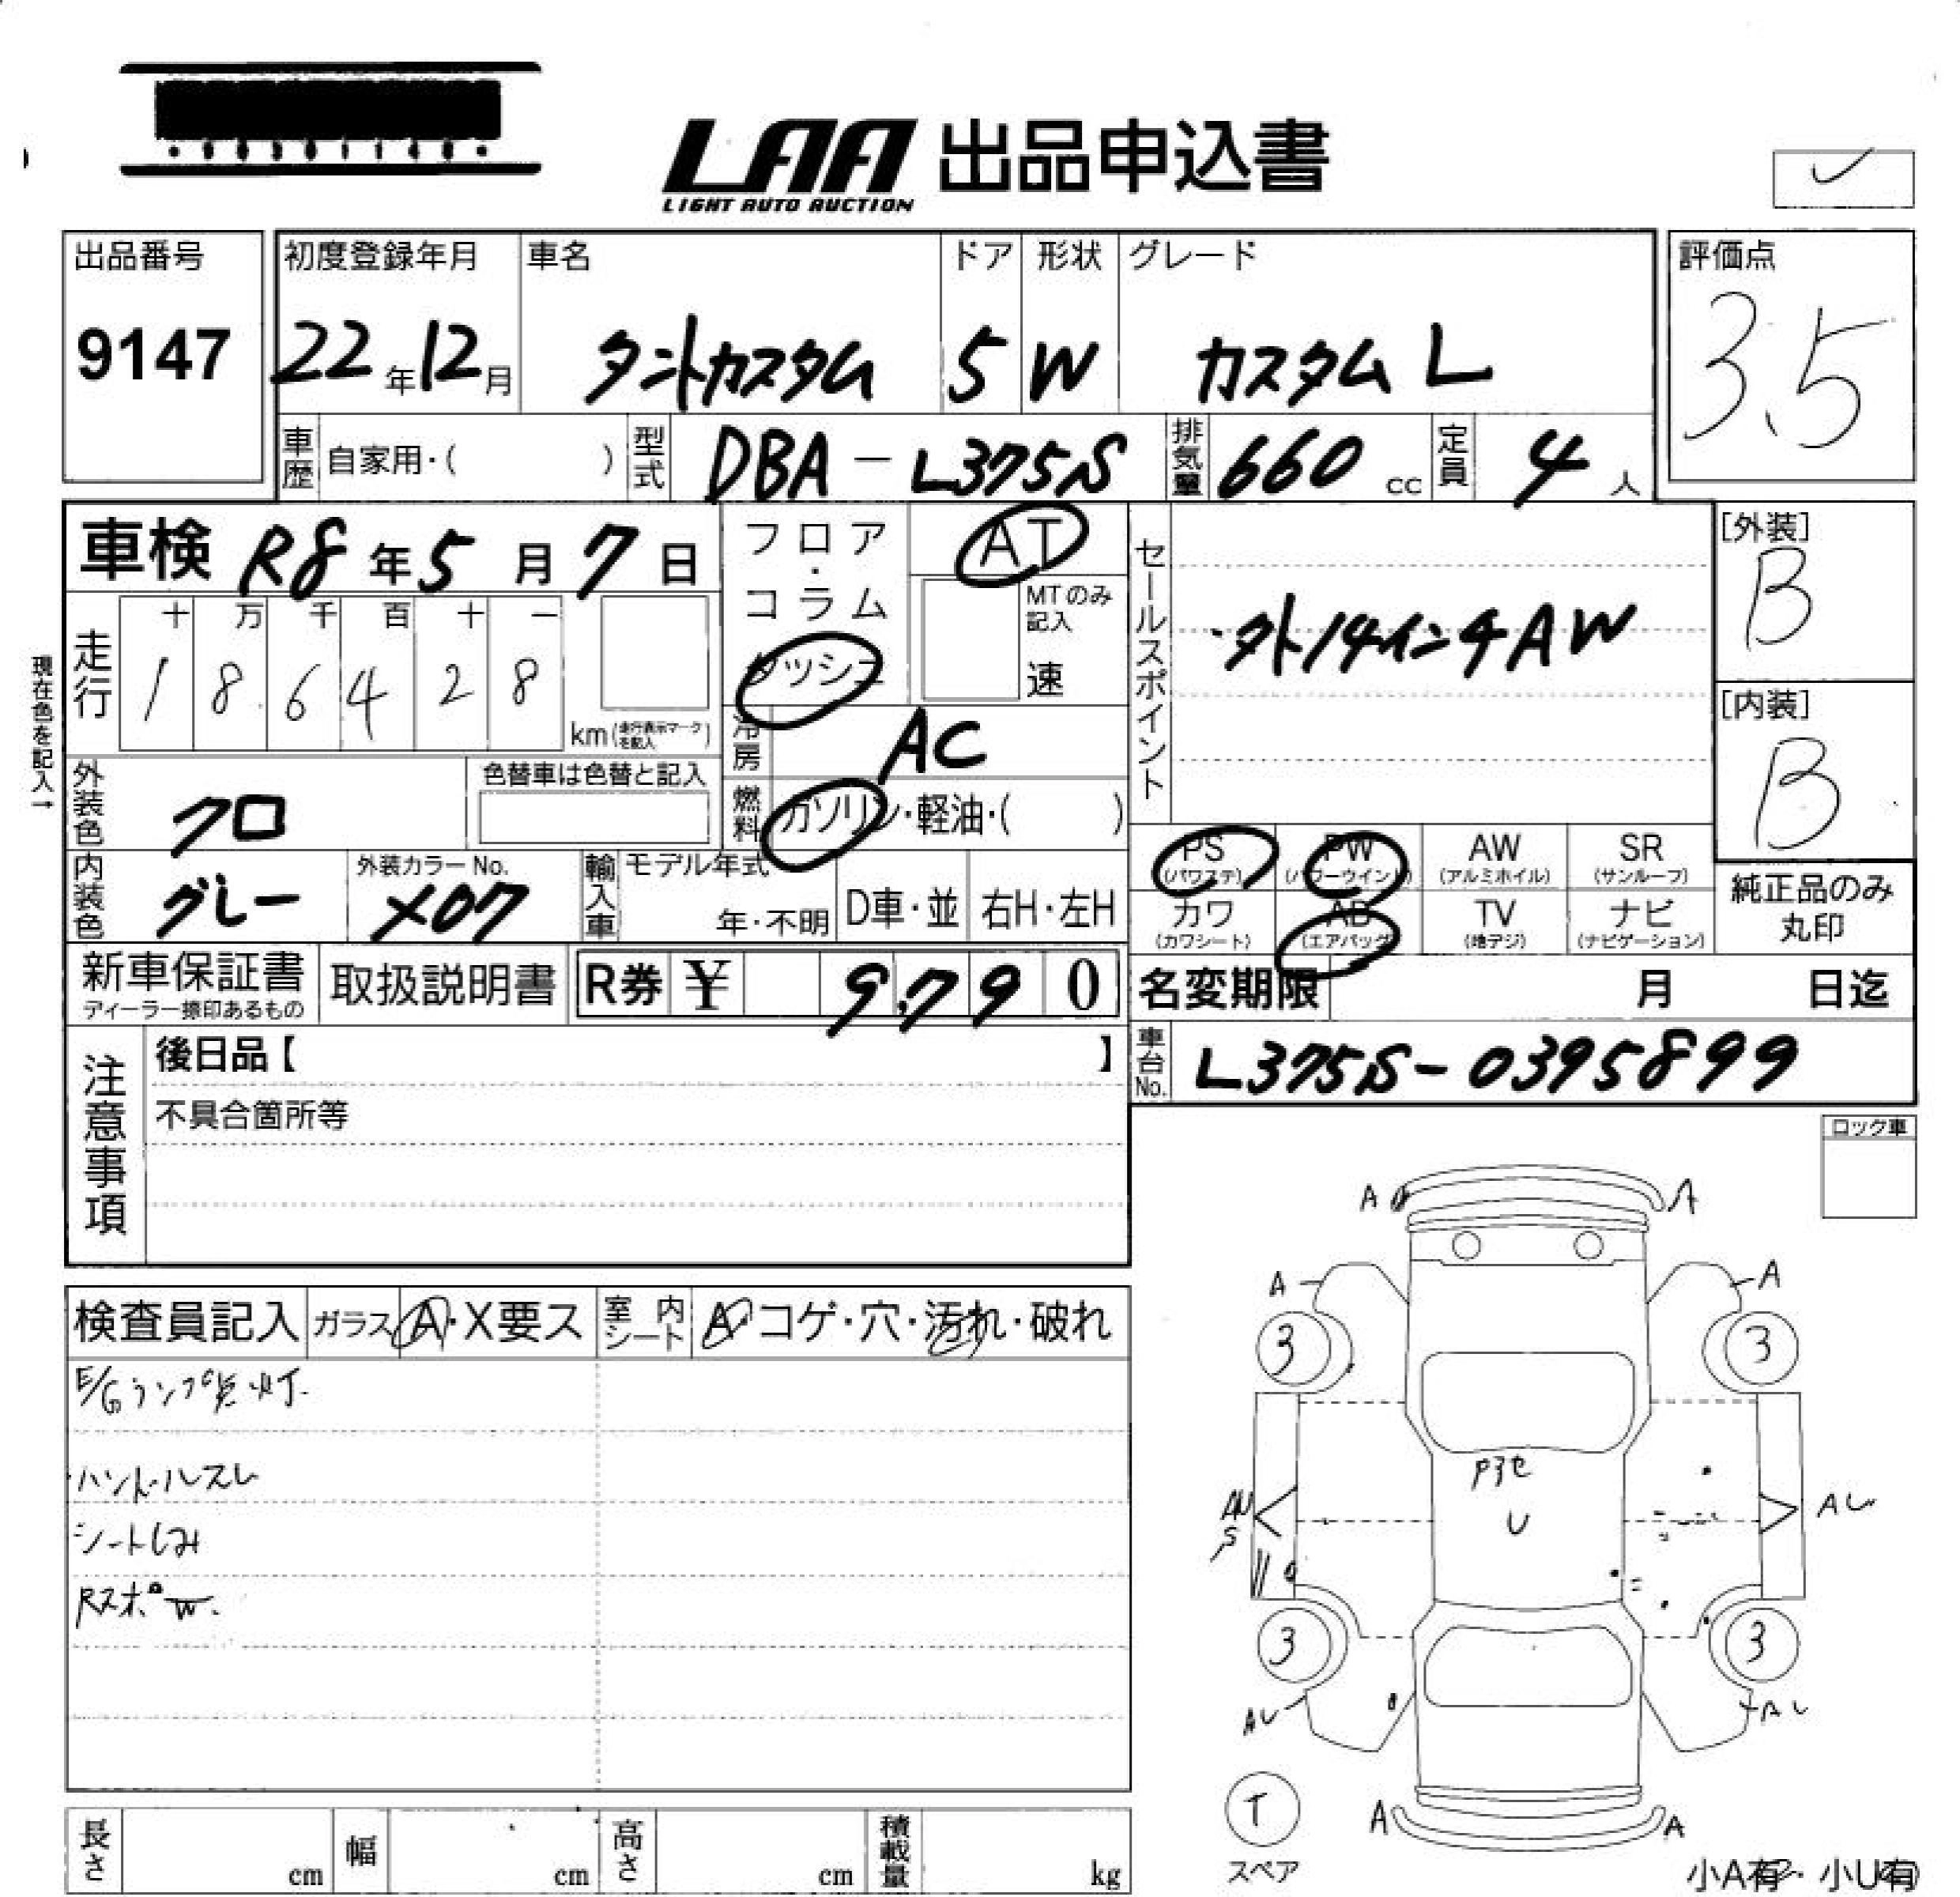 LAA 出品申込書
LIGHT AUTO AUCTION
出品番号
9147
初度登録年月
22年12月
車名
タントカスタム
ドア
5
形状
W
グレード
カスタム L
評価点
3.5
車歴 自家用・( )
型式 DBA-L375S
排気量 660 cc
定員 4 人
車検 R8年5月7日
フロア・コラム
ダッシュ
AT
MTのみ記入
速
セールスポイント
・タト14インチAW
[外装]
B
[内装]
B
現在色を記入→
走行
十 万 千 百 十 一
1 8 6 4 2 8
km(走行表示マークを記入)
冷房 AC
燃料 ガソリン・軽油・( )
外装色 クロ
色替車は色替と記入
内装色 グレー
外装カラーNo.
X07
輸入車 モデル年式
年・不明
D車・並
右H・左H
PS (パワステ)
PW (パワーウインド)
AW (アルミホイル)
SR (サンルーフ)
カワ (カワシート)
AB (エアバッグ)
TV (地デジ)
ナビ (ナビゲーション)
純正品のみ丸印
新車保証書
ディーラー捺印あるもの
取扱説明書
R券 ¥ 9,790
名変期限 月 日迄
車台No. L375S-0395899
注意事項
後日品【 】
不具合箇所等
ロック車
検査員記入
ガラス A・X要ス
室内シート A・コゲ・穴・汚れ・破れ
E/Gランプ点灯.
ハンドルスレ
シートしみ
RスポW.
A
A
A
A
3
3
U
AU
S
AU
3
3
AU
AU
T
スペア
A
A
小A有・小U有
長さ cm
幅 cm
高さ cm
積載量 kg